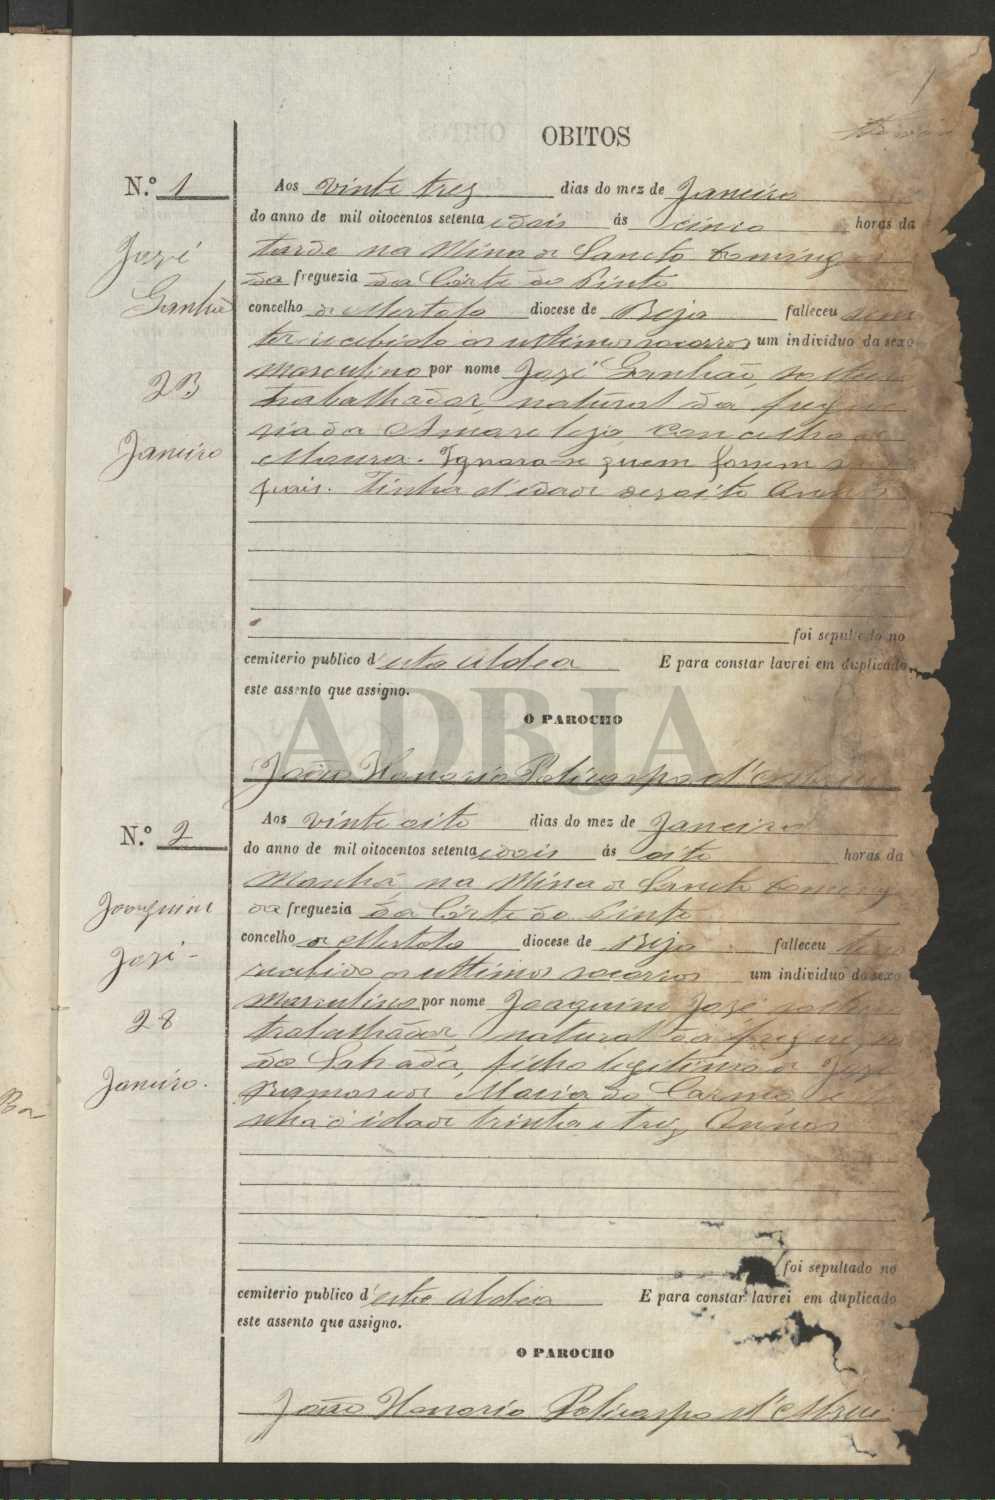 1
OBITOS
N.º 1
José
Ganhão
23
Janeiro
Aos vinte trez dias do mez de Janeiro
do anno de mil oitocentos setenta e dois ás cinco horas da
tarde na Mina de Sancto Domingos
da freguezia da Côrte do Pinto
concelho de Mertola diocese de Beja falleceu sem
ter recebido os ultimos socorros um individuo da sexo
masculino por nome José Ganhão, solteiro
trabalhador, natural da fregue
sia da Amareleja, concelho de
Moura. Ignora-se quem fossem seus
pais. Tinha d'idade dezoito annos
foi sepultado no
cemiterio publico d'esta Aldea E para constar lavrei em duplicado
este assento que assigno.
O PAROCHO
João Honorio Policarpo d'
N.º 2
Joaquim
José
28
Janeiro.
Aos vinte oito dias do mez de Janeiro
do anno de mil oitocentos setenta e dois ás oito horas da
Manhã, na Mina de Sancto Domingos
da freguezia da Côrte do Pinto
concelho de Mertola diocese de Beja falleceu tendo
recebido os ultimos socorros um individuo do sexo
masculino por nome Joaquim José solteiro
trabalhador, natural da freguezia
do filho legitimo de José
Ramos e de Maria do Carmo e ti
nha d'idade trinta e trez Annos
foi sepultado no
cemiterio publico d'esta Aldea E para constar lavrei em duplicado
este assento que assigno.
O PAROCHO
João Honorio Policarpo d'Abreu
ADBJA